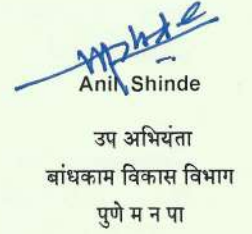 Anil Shinde
उप अभियंता
बांधकाम विकास विभाग
पुणे म न पा